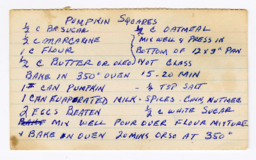 PUMPKIN SQUARES
½ C BR SUGAR ½ C OATMEAL
½ C MARGARINE MIX WELL & PRESS IN
1 C FLOUR BOTTOM OF 12 X 9" PAN
½ C BUTTER OR OLEO NOT GLASS
BAKE IN 350° OVEN 15-20 MIN
1 # CAN PUMPKIN - ½ TSP SALT
1 CAN EVAPERATED MILK - SPICES - CINN, NUTMEG
2 EGGS BEATEN ½ C WHITE SUGAR
MIX WELL POUR OVER FLOUR MIXTURE
& BAKE IN OVEN 20 MINS OR SO AT 350°